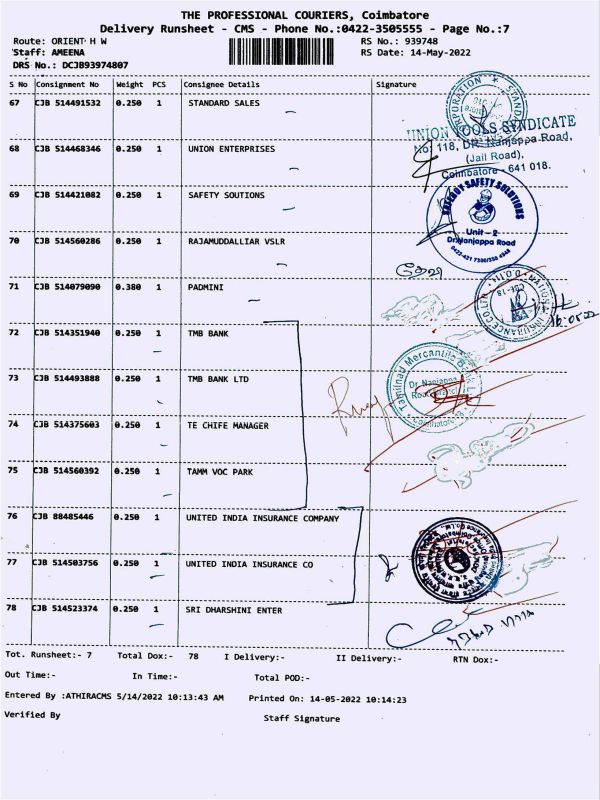 THE PROFESSIONAL COURIERS, Coimbatore
Delivery Runsheet - CMS - Phone No.:0422-3505555 - Page No.:7
Route: ORIENT H W RS No.: 939748
Staff: AMEENA RS Date: 14-May-2022
DRS No.: DCJB93974807
S No Consignment No Weight PCS Consignee Details Signature
67 CJB 514491532 0.250 1 STANDARD SALES
UNION TOOLS SYNDICATE
No: 118, DR. Nanjappa Road,
(Jail Road),
Coimbatore - 641 018.
68 CJB 514468346 0.250 1 UNION ENTERPRISES
69 CJB 514421082 0.250 1 SAFETY SOUTIONS
SAFETY SOLUTIONS
Unit - 2
Dr.Nanjappa Road
70 CJB 514560286 0.250 1 RAJAMUDDALLIAR VSLR
71 CJB 514079090 0.380 1 PADMINI
72 CJB 514351940 0.250 1 TMB BANK
73 CJB 514493888 0.250 1 TMB BANK LTD
Tamilnad Mercantile Bank Ltd
Dr. Nanjappa
Road Branch
Coimbatore
74 CJB 514375603 0.250 1 TE CHIFE MANAGER
75 CJB 514560392 0.250 1 TAMM VOC PARK
76 CJB 88485446 0.250 1 UNITED INDIA INSURANCE COMPANY
77 CJB 514503756 0.250 1 UNITED INDIA INSURANCE CO
78 CJB 514523374 0.250 1 SRI DHARSHINI ENTER
Tot. Runsheet:- 7 Total Dox:- 78 I Delivery:- II Delivery:- RTN Dox:-
Out Time:- In Time:- Total POD:-
Entered By :ATHIRACMS 5/14/2022 10:13:43 AM Printed On: 14-05-2022 10:14:23
Verified By Staff Signature